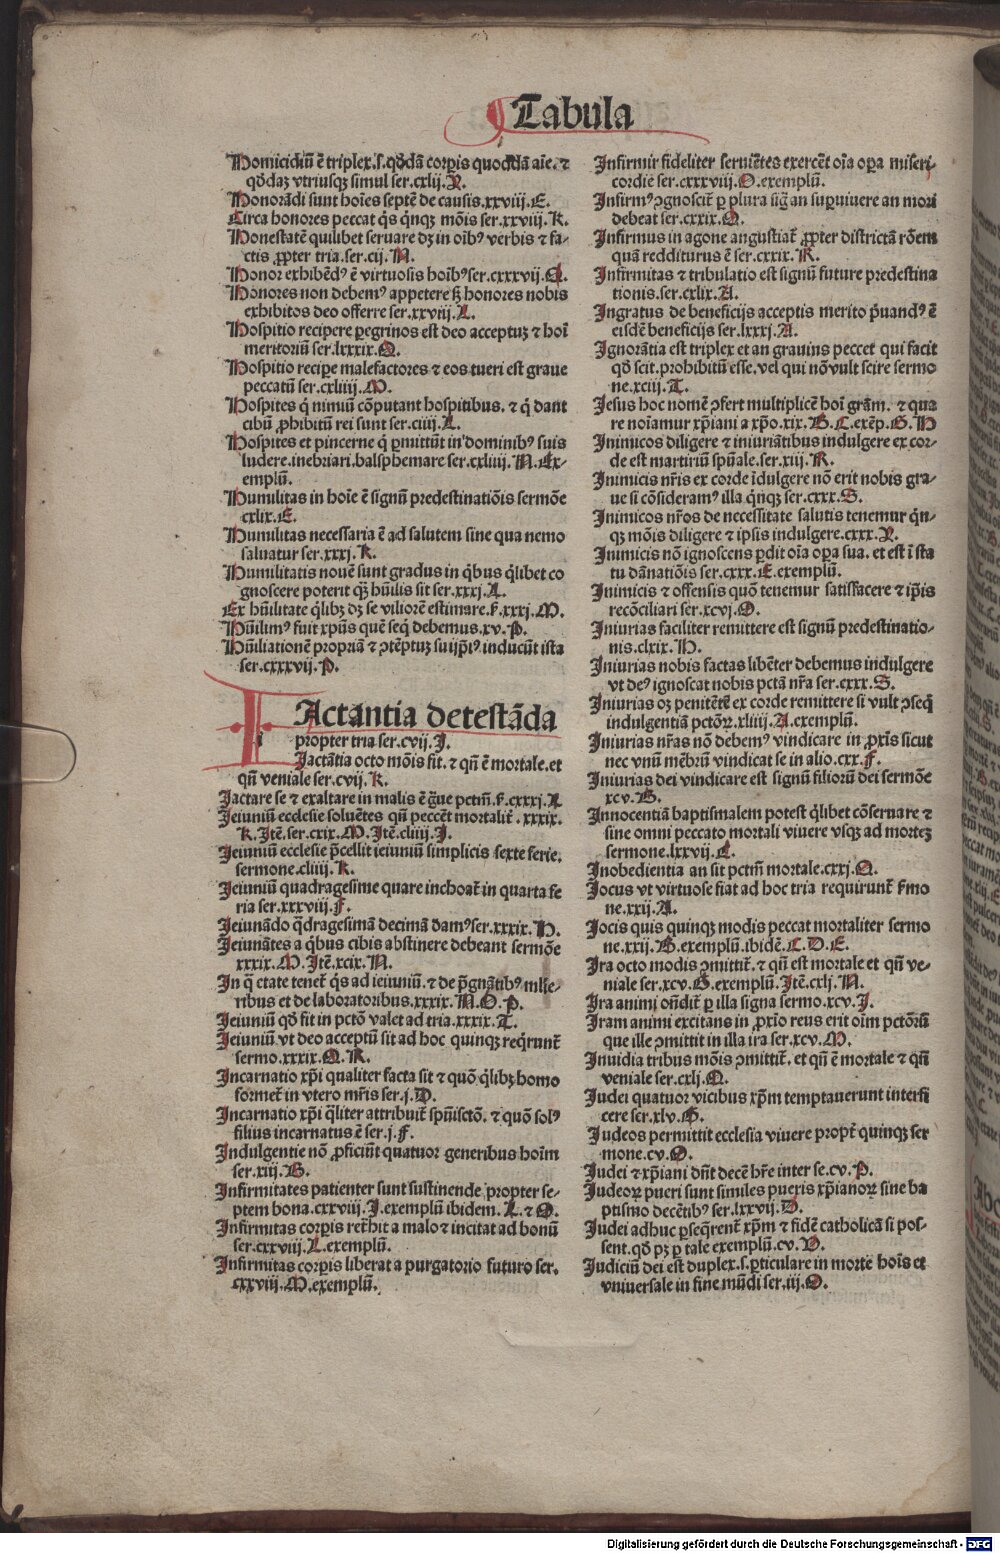 Tabula
Homicidiū ē triplex.s.qͦddā corꝑis quoddā aīe.⁊
qͦddaꝫ vtriusqꝫ simul ser.cxlij.Y.
Honorādi sunt hoīes septē de causis.xxviij.E.
Circa honores peccat q̇s q̇nqꝫ mōis ser.xxviij.K.
Honestatē quilibet seruare dꝫ in oībꝰ verbis ⁊ fa-
ctis ꝓpter tria.ser.cij.N.
Honor exhibēdꝰ ē virtuosis hoībꝰ ser.cxxxvij.Q.
Honores non debemꝰ appetere sꝫ honores nobis
exhibitos deo offerre ser.xxviij.L.
Hospitio recipere ꝑegrinos est deo acceptuꝫ ⁊ hoī
meritoriū ser.lxxxix.Q.
Hospitio recipe malefactores ⁊ eos tueri est graue
peccatū ser.cxliiij.M.
Hospites q̇ nimiū cōputant hospitibus. ⁊ q̇ dant
cibū ꝓhibitū rei sunt ser.ciiij.L.
Hospites et pincerne q̇ ꝑmittūt in dominibꝰ suis
ludere.inebriari.balsphemare ser.cxliiij.N.Ex-
emplū.
Humilitas in hoīe ē signū predestinatiōis sermōe
cxlix.E.
Humilitas necessaria ē ad salutem sine qua nemo
saluatur ser.xxxj.K.
Humilitatis nouē sunt gradus in q̇bus q̇libet co
gnoscere poterit qꝫ hūilis sit ser.xxxj.L.
Ex hūilitate q̇libꝫ dꝫ se viliorē estimare.ẜ.xxxj.M.
Hūilimꝰ fuit xp̄us quē seq̇ debemus.xv.P.
Hūiliationē propriā ⁊ ↄtēptuꝫ suijpīꝰ inducūt ista
ser.cxxxvij.P.
IActantia detestāda
propter tria ser.cvij.I.
Jactātia octo mōis fit. ⁊ qn̄ ē mortale.et
qn̄ veniale ser.cvij.K.
Jactare se ⁊ exaltare in malis ē g̈ue pctm̄.ẜ.cxxxj.L
Jeiuniū ecclesie soluētes qn̄ peccēt mortalit̄.xxxix.
K.Itē.ser.cxix.M.Itē.cliiij.I.
Jeiuniū ecclesie p̄cellit ieiuniū simplicis sexte ferie.
sermone.cliiij.K.
Jeiuniū quadragesime quare inchoat̄ in quarta fe
ria ser.xxxviij.F.
Jeiunādo q̄dragesimā decimā damꝰ ser.xxxix.H.
Jeiunātes a q̇bus cibis abstinere debeant sermōe
xxxix.M.Itē.xcix.N.
In q̄ etate tenet̄ q̇s ad ieiuniū.⁊ de p̄gnātibꝰ mulie-
ribus et de laboratoribus.xxxix.N.O.P.
Jeiuniū qd̄ fit in pctō valet ad tria.xxxix.T.
Jeiuniū vt deo acceptū sit ad hoc quinqꝫ req̇runt̄
sermo.xxxix.Q.R.
Incarnatio xp̄i qualiter facta sit ⁊ quō q̇libꝫ homo
formet̄ in vtero mr̄is ser.j.D.
Incarnatio xp̄i q̄liter attribuit̄ spūisctō.⁊ quō solꝰ
filius incarnatus ē ser.j.F.
Indulgentie nō ꝓficiūt quatuor generibus hoīm
ser.xiij.B.
Infirmitates patienter sunt sustinende propter se-
ptem bona.cxxviij.I.exemplū ibidem.L.⁊ Q.
Infirmitas corꝑis ret̄hit a malo ⁊ incitat ad bonū
ser.cxxviij.L.exemplū.
Infirmitas corꝑis liberat a purgatorio futuro ser.
cxxviij.M.exemplū.
Infirmir fideliter seruiētes exercēt oīa oꝑa miseri-
cordie ser.cxxxviij.O.exemplū.
Infirmꝰ ↄgnoscit̄ ꝑ plura sig̈ an suꝑuiuere an mori
debeat ser.cxxix.Q.
Infirmus in agone angustiat̄ ꝓpter districtā rōem
quā redditurus ē ser.cxxix.R.
Infirmitas ⁊ tribulatio est signū future predestina
tionis.ser.cxlix.A.
Ingratus de beneficijs acceptis merito p̄uandꝰ ē
eisdē beneficijs ser.lxxxj.A.
Ignorātia est triplex et an grauius peccet qui facit
qd̄ scit.prohibitū esse.vel qui nō vult scire sermo
ne.xciij.T.
Jesus hoc nomē ↄfert multiplicē hoī grām. ⁊ qua
re noīamur xp̄iani a xp̄o.xix.B.C.exēp.G.H
Inimicos diligere ⁊ iniuriātibus indulgere ex cor-
de est martiriū spūale.ser.xiij.R.
Inimicis nr̄is ex corde īdulgere nō erit nobis gra-
ue si cōsideramꝰ illa q̇nqꝫ ser.cxxx.S.
Inimicos nr̄os de necessitate salutis tenemur q̇n-
qꝫ mōis diligere ⁊ ipsis indulgere.cxxx.Y.
Inimicis nō ignoscens ꝑdit oīa oꝑa sua. et est ī sta
tu dānatiōis ser.cxxx.E.exemplū.
Inimicis ⁊ offensis quō tenemur satisfacere ⁊ ip̄is
recōciliari ser.xcvj.O.
Iniurias faciliter remittere est signū predestinatio-
nis.clxix.H.
Iniurias nobis factas libēter debemus indulgere
vt deꝰ ignoscat nobis pctā nr̄a ser.cxxx.S.
Iniurias oꝫ penitētē ex corde remittere si vult ↄseq̇
indulgentiā pctōꝝ.xliiij.A.exemplū.
Iniurias nr̄as nō debemꝰ vindicare in ꝓxīs sicut
nec vnū mēbrū vindicat se in alio.cxx.F.
Iniurias dei vindicare est signū filiorū dei sermōe
xcv.B.
Innocentiā baptismalem potest q̇libet cōseruare ⁊
sine omni peccato mortali viuere vsqꝫ ad morteꝫ
sermone.lxxvij.C.
Inobedientia an sit pctm̄ mortale.cxxj.Q.
Jocus vt virtuose fiat ad hoc tria requirunt̄ ẜmo
ne.xxij.A.
Jocis quis quinqꝫ modis peccat mortaliter sermo
ne.xxij.B.exemplū.ibidē.C.D.E.
Ira octo modis ↄmittit̄. ⁊ qn̄ est mortale et qn̄ ve-
niale ser.xcv.G.exemplū.Itē.cxlj.N.
Ira animi oñdit̄ ꝑ illa signa sermo.xcv.I.
Iram animi excitans in ꝓxīo reus erit oīm pctōrū
que ille ↄmittit in illa ira ser.xcv.M.
Inuidia tribus mōis ↄmittit̄. et qn̄ ē mortale ⁊ qn̄
veniale ser.cxlj.Q.
Judei quatuor vicibus xp̄m temptauerunt interfi
cere ser.xlv.G.
Judeos permittit ecclesia viuere propt̄ quinqꝫ ser
mone.cv.O.
Judei ⁊ xp̄iani dn̄t decē hr̄e inter se.cv.P.
Judeoꝝ pueri sunt similes pueris xp̄ianoꝝ sine ba
ptismo decētibꝰ ser.lxxvij.D.
Judei adhuc ꝑseq̄rent̄ xp̄m ⁊ fidē catholicā si pos-
sent.qd̄ pꝫ ꝑ tale exemplū.cv.V.
Judiciū dei est duplex.s.ꝑticulare in morte hoīs et
vniuersale in fine mūdi ser.iij.O.
Digitalisierung gefördert durch die Deutsche Forschungsgemeinschaft - DFG